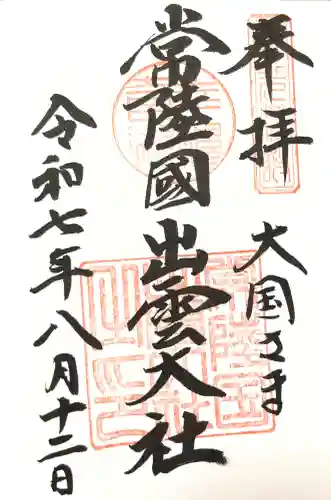 奉拝
大国さま
常陸國出雲大社
令和七年八月十二日